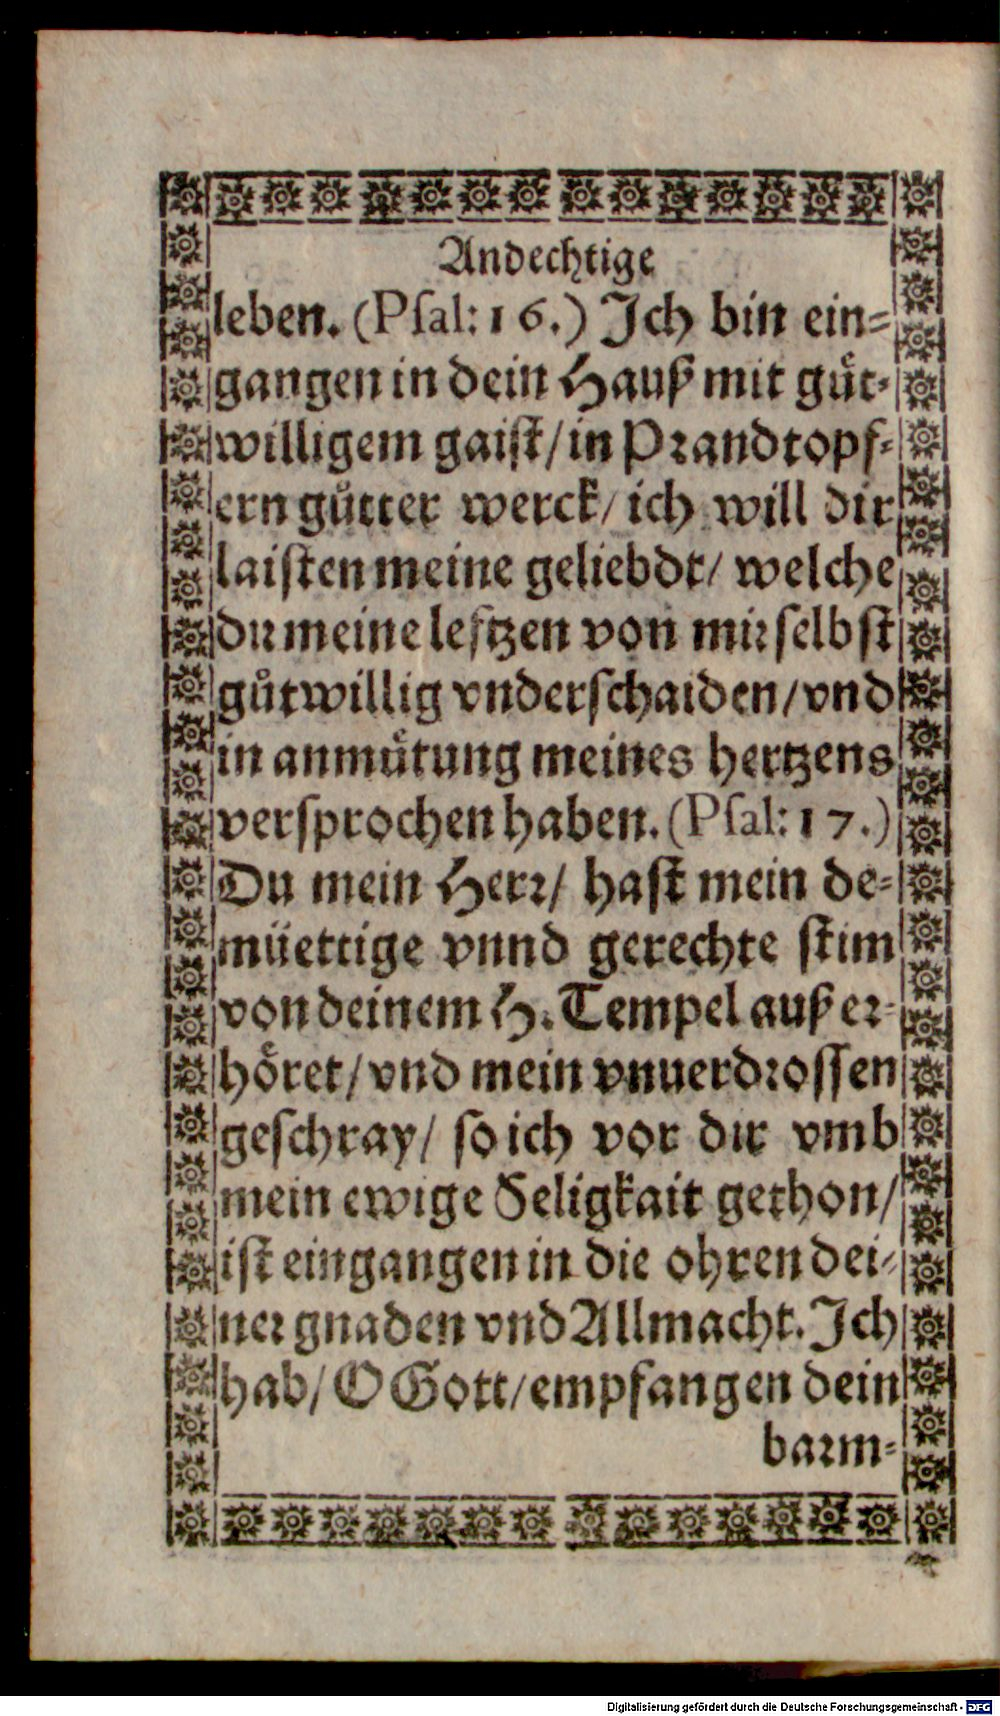 Andechtige
leben. (Pſal: 16.) Ich bin ein⸗
gangen in dein Hauß mit guͤt⸗
willigem gaiſt/ in Prandtopf⸗
ern guͤtter werck/ ich will dir
laiſten meine geliebdt/ welche
du meine lefftzen von mir ſelbſt
guͤtwillig vnderſchaiden/ vnd
in anmuͤtung meines hertzens
verſprochen haben. (Pſal: 17.)
Du mein Herr/ haſt mein de⸗
müettige vnnd gerechte ſtim
von deinem H. Tempel auß er⸗
hoͤret/ vnd mein vnuerdroſſen
geſchray/ ſo ich vor dir vmb
mein ewige Seligkait gethon/
iſt eingangen in die ohren dei⸗
ner gnaden vnd Allmacht. Ich
hab/ O Gott/ empfangen dein
barm⸗
Digitalisierung gefördert durch die Deutsche Forschungsgemeinschaft - DFG